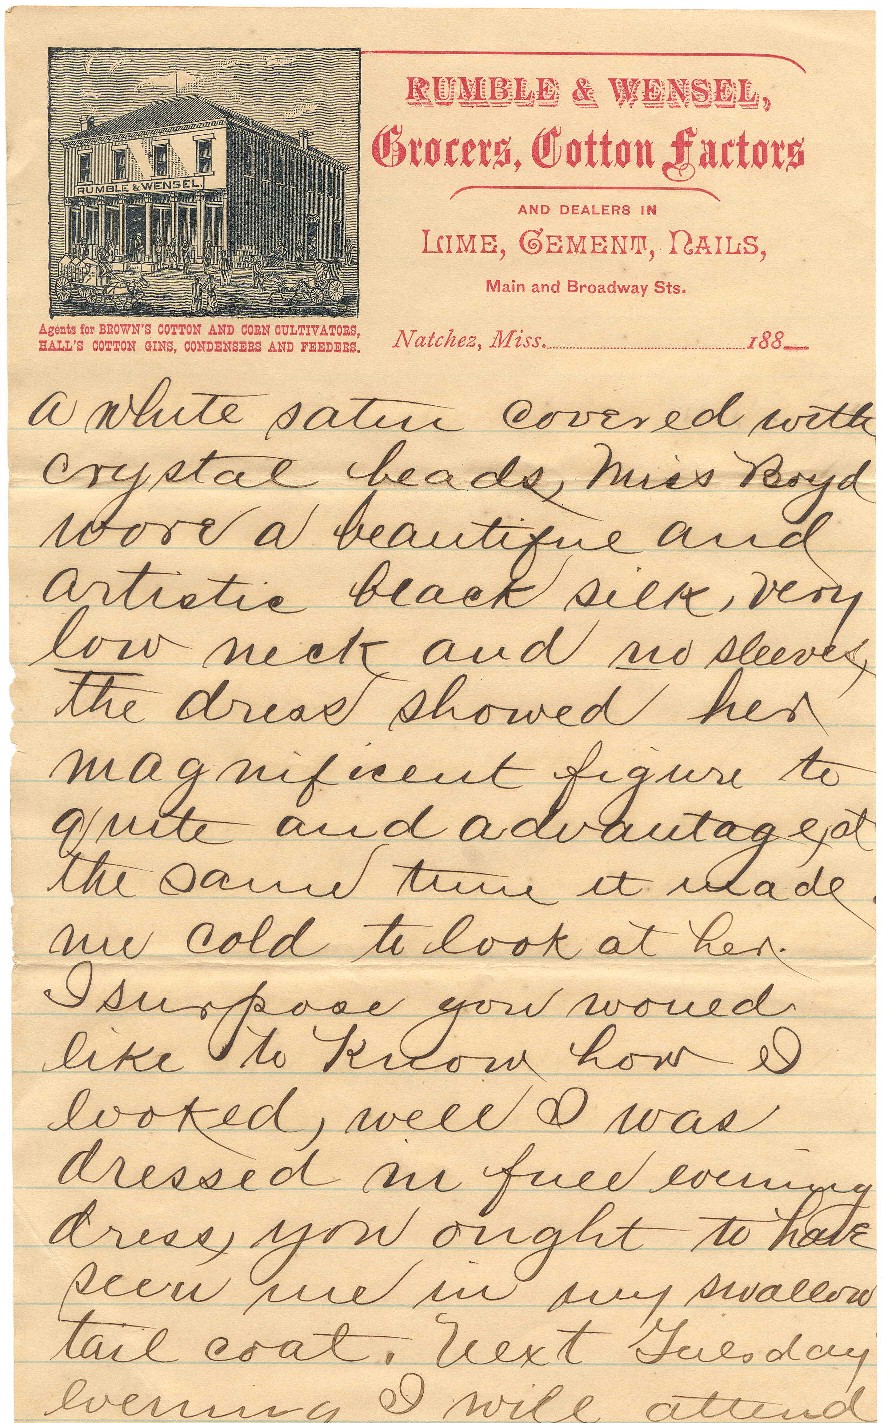 RUMBLE & WENSEL,
Grocers, Cotton Factors
AND DEALERS IN
LIME, CEMENT, NAILS,
Main and Broadway Sts.
RUMBLE & WENSEL.
Agents for BROWN'S COTTON AND CORN CULTIVATORS,
HALL'S COTTON GINS, CONDENSERS AND FEEDERS.
Natchez, Miss. 188
a white satin covered with
crystal beads, Miss Boyd
wore a beautiful and
artistic black silk, very
low neck and no sleeves,
The dress showed her
magnificent figure to
quite and advantage, at
the same time it made
me cold to look at her.
I surpose you would
like to know how I
looked, well I was
dressed in full evening
dress, you ought to have
seen me in my swallow
tail coat. Next Tuesday
evening I will attend